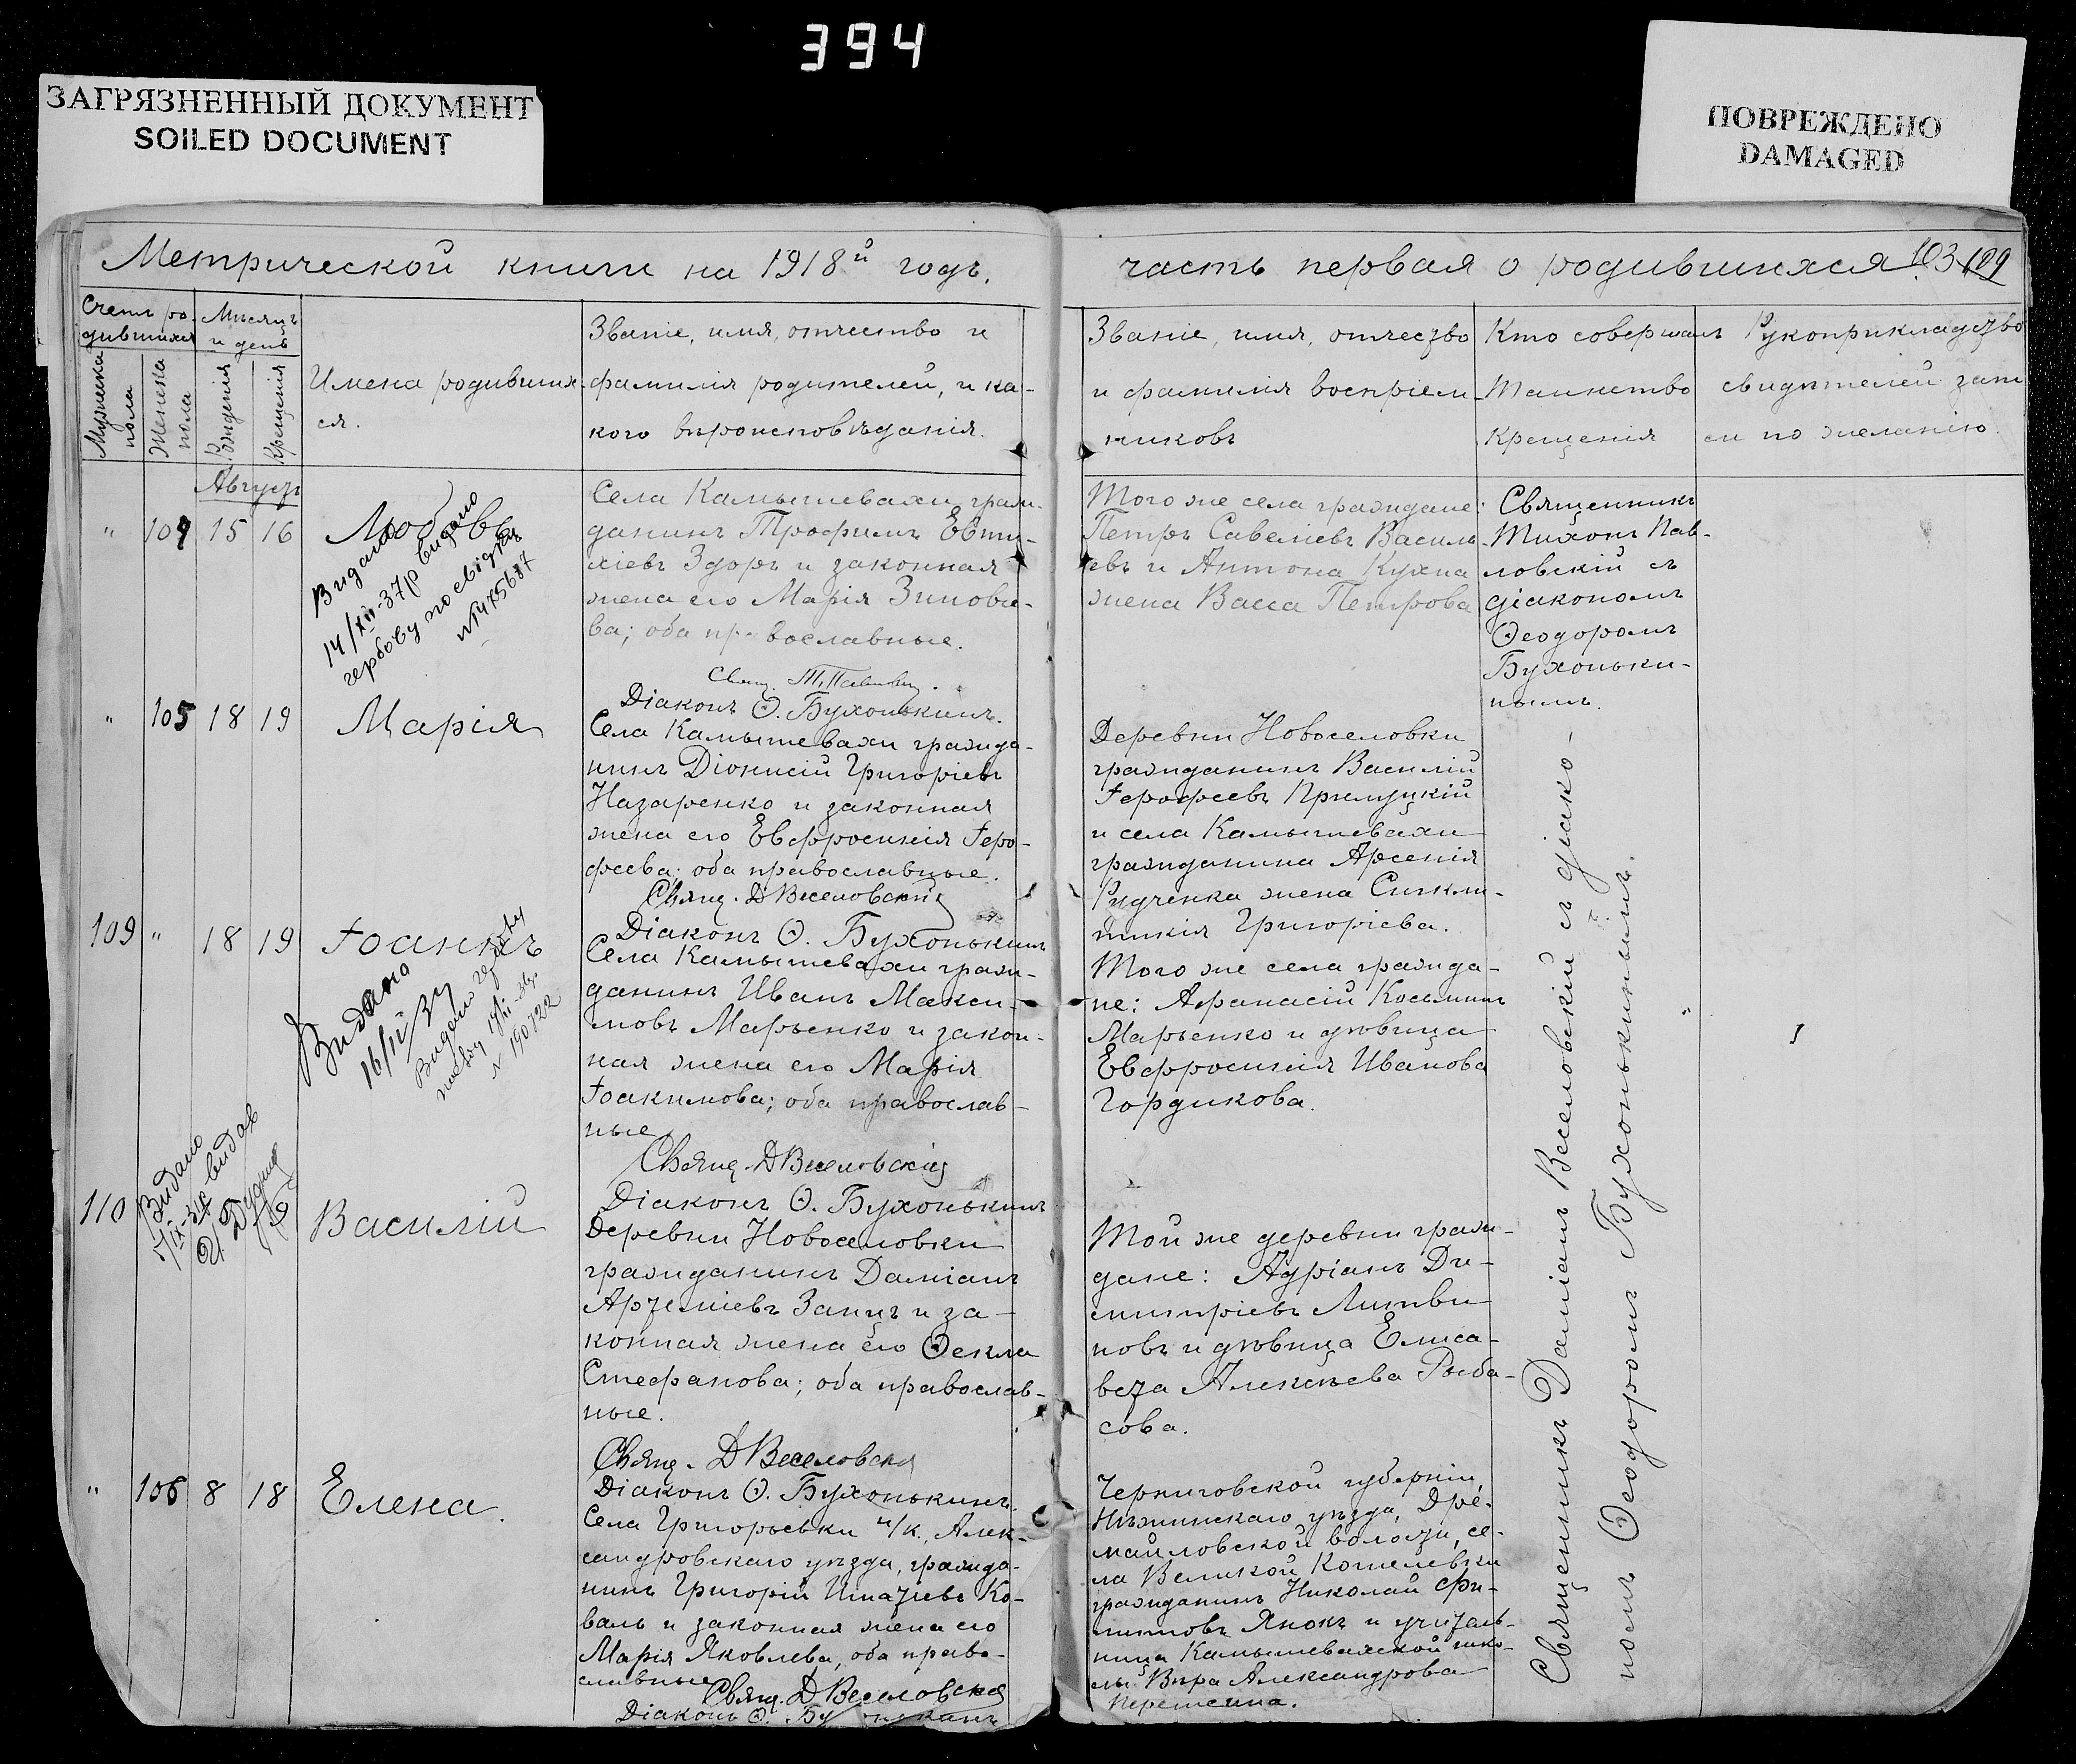 394
ЗАГРЯЗНЕННЫЙ ДОКУМЕНТ
SOILED DOCUMENT
ПОВРЕЖДЕНО
DAMAGED
Метрической книги на 1918й годъ.
часть первая о родившихся.
103
Счетъ ро-
дившихся
Мужеска
пола
Женска
пола
Мѣсяцъ
и день
Рожденія
Крещенія
Имена родивших-
ся.
Званіе, имя, отчество и
фамилія родителей, и ка-
кого вѣроисповѣданія.
Званіе, имя, отчество
и фамилія воспріем-
никовъ
Кто совершалъ
Таинство
Крещенія
Рукоприкладство
свидѣтелей запи
си по желанію.
Августъ
" 104 15 16 Любовь
Видано
14/XII-37р видано
гербову посвідку
№475687
Села Камышевахи граж-
данинъ Трофимъ Евти-
хіевъ Здоръ и законная
жена его Марія Зиновье-
ва; оба православные.
Свящ. Т. Павловскій.
Діаконъ Ѳ. Бухонькинъ.
Того же села граждане:
Петръ Савеліевъ Василь-
евъ и Антона Кухна
жена Васса Петрова
Священникъ
Тихонъ Пав-
ловскій съ
діакономъ
Ѳеодоромъ
Бухоньки-
нымъ.
" 105 18 19 Марія
Села Камышевахи гражда-
нинъ Діонисій Григоріевъ
Назаренко и законная
жена его Евфросинія Іеро-
феева; оба православные.
Свящ. Д Веселовскій
Діаконъ Ѳ. Бухонькинъ
Деревни Новоселовки
гражданинъ Василій
Іерофеевъ Прилуцкій
и села Камышевахи
гражданина Арсенія
Рудченка жена Синкли-
тикія Григоріева.
109 " 18 19 Іоаннъ
Видана
16/II 34
Видано
№ 190722
Села Камышевахи граж-
данинъ Иванъ Макси-
мовъ Марьенко и закон-
ная жена его Марія
Іоакимова; оба православ-
ные.
Свящ. Д Веселовскій
Діаконъ Ѳ. Бухонькинъ
Того же села гражда-
не: Аѳанасій Косьминъ
Марьенко и дѣвица
Евфросинія Иванова
Гордикова.
110 Василій
Видано
видав
Деревни Новоселовки
гражданинъ Даміанъ
Артеміевъ Заицъ и за-
конная жена его Ѳекла
Стефанова; оба православ-
ные.
Свящ. Д Веселовскій
Діаконъ Ѳ. Бухонькинъ.
Той же деревни граж-
дане: Адріанъ Ди-
митріевъ Литви
новъ и дѣвица Елиса-
вета Алексѣева Рыба-
сова.
" 106 8 18 Елена.
Села Григорьевки н/к., Алек-
сандровскаго уѣзда, гражда-
нинъ Григорій Игнатіевъ Ко-
валь и законная жена его
Марія Яковлева, оба право-
славные.
Свящ. Д Веселовскій
Діаконъ Ѳ. Бухонькинъ
Черниговской губерніи,
Нѣжинскаго уѣзда, Дре-
майловской волости, се-
ла Великой Кошелевки
гражданинъ Николай Фи-
липповъ Янокъ и учитель-
ница Камышевахской шко-
лы Вѣра Александрова
Перешеина.
Священникъ Даміанъ Веселовскій съ діако-
номъ Ѳеодоромъ Бухонькинымъ.